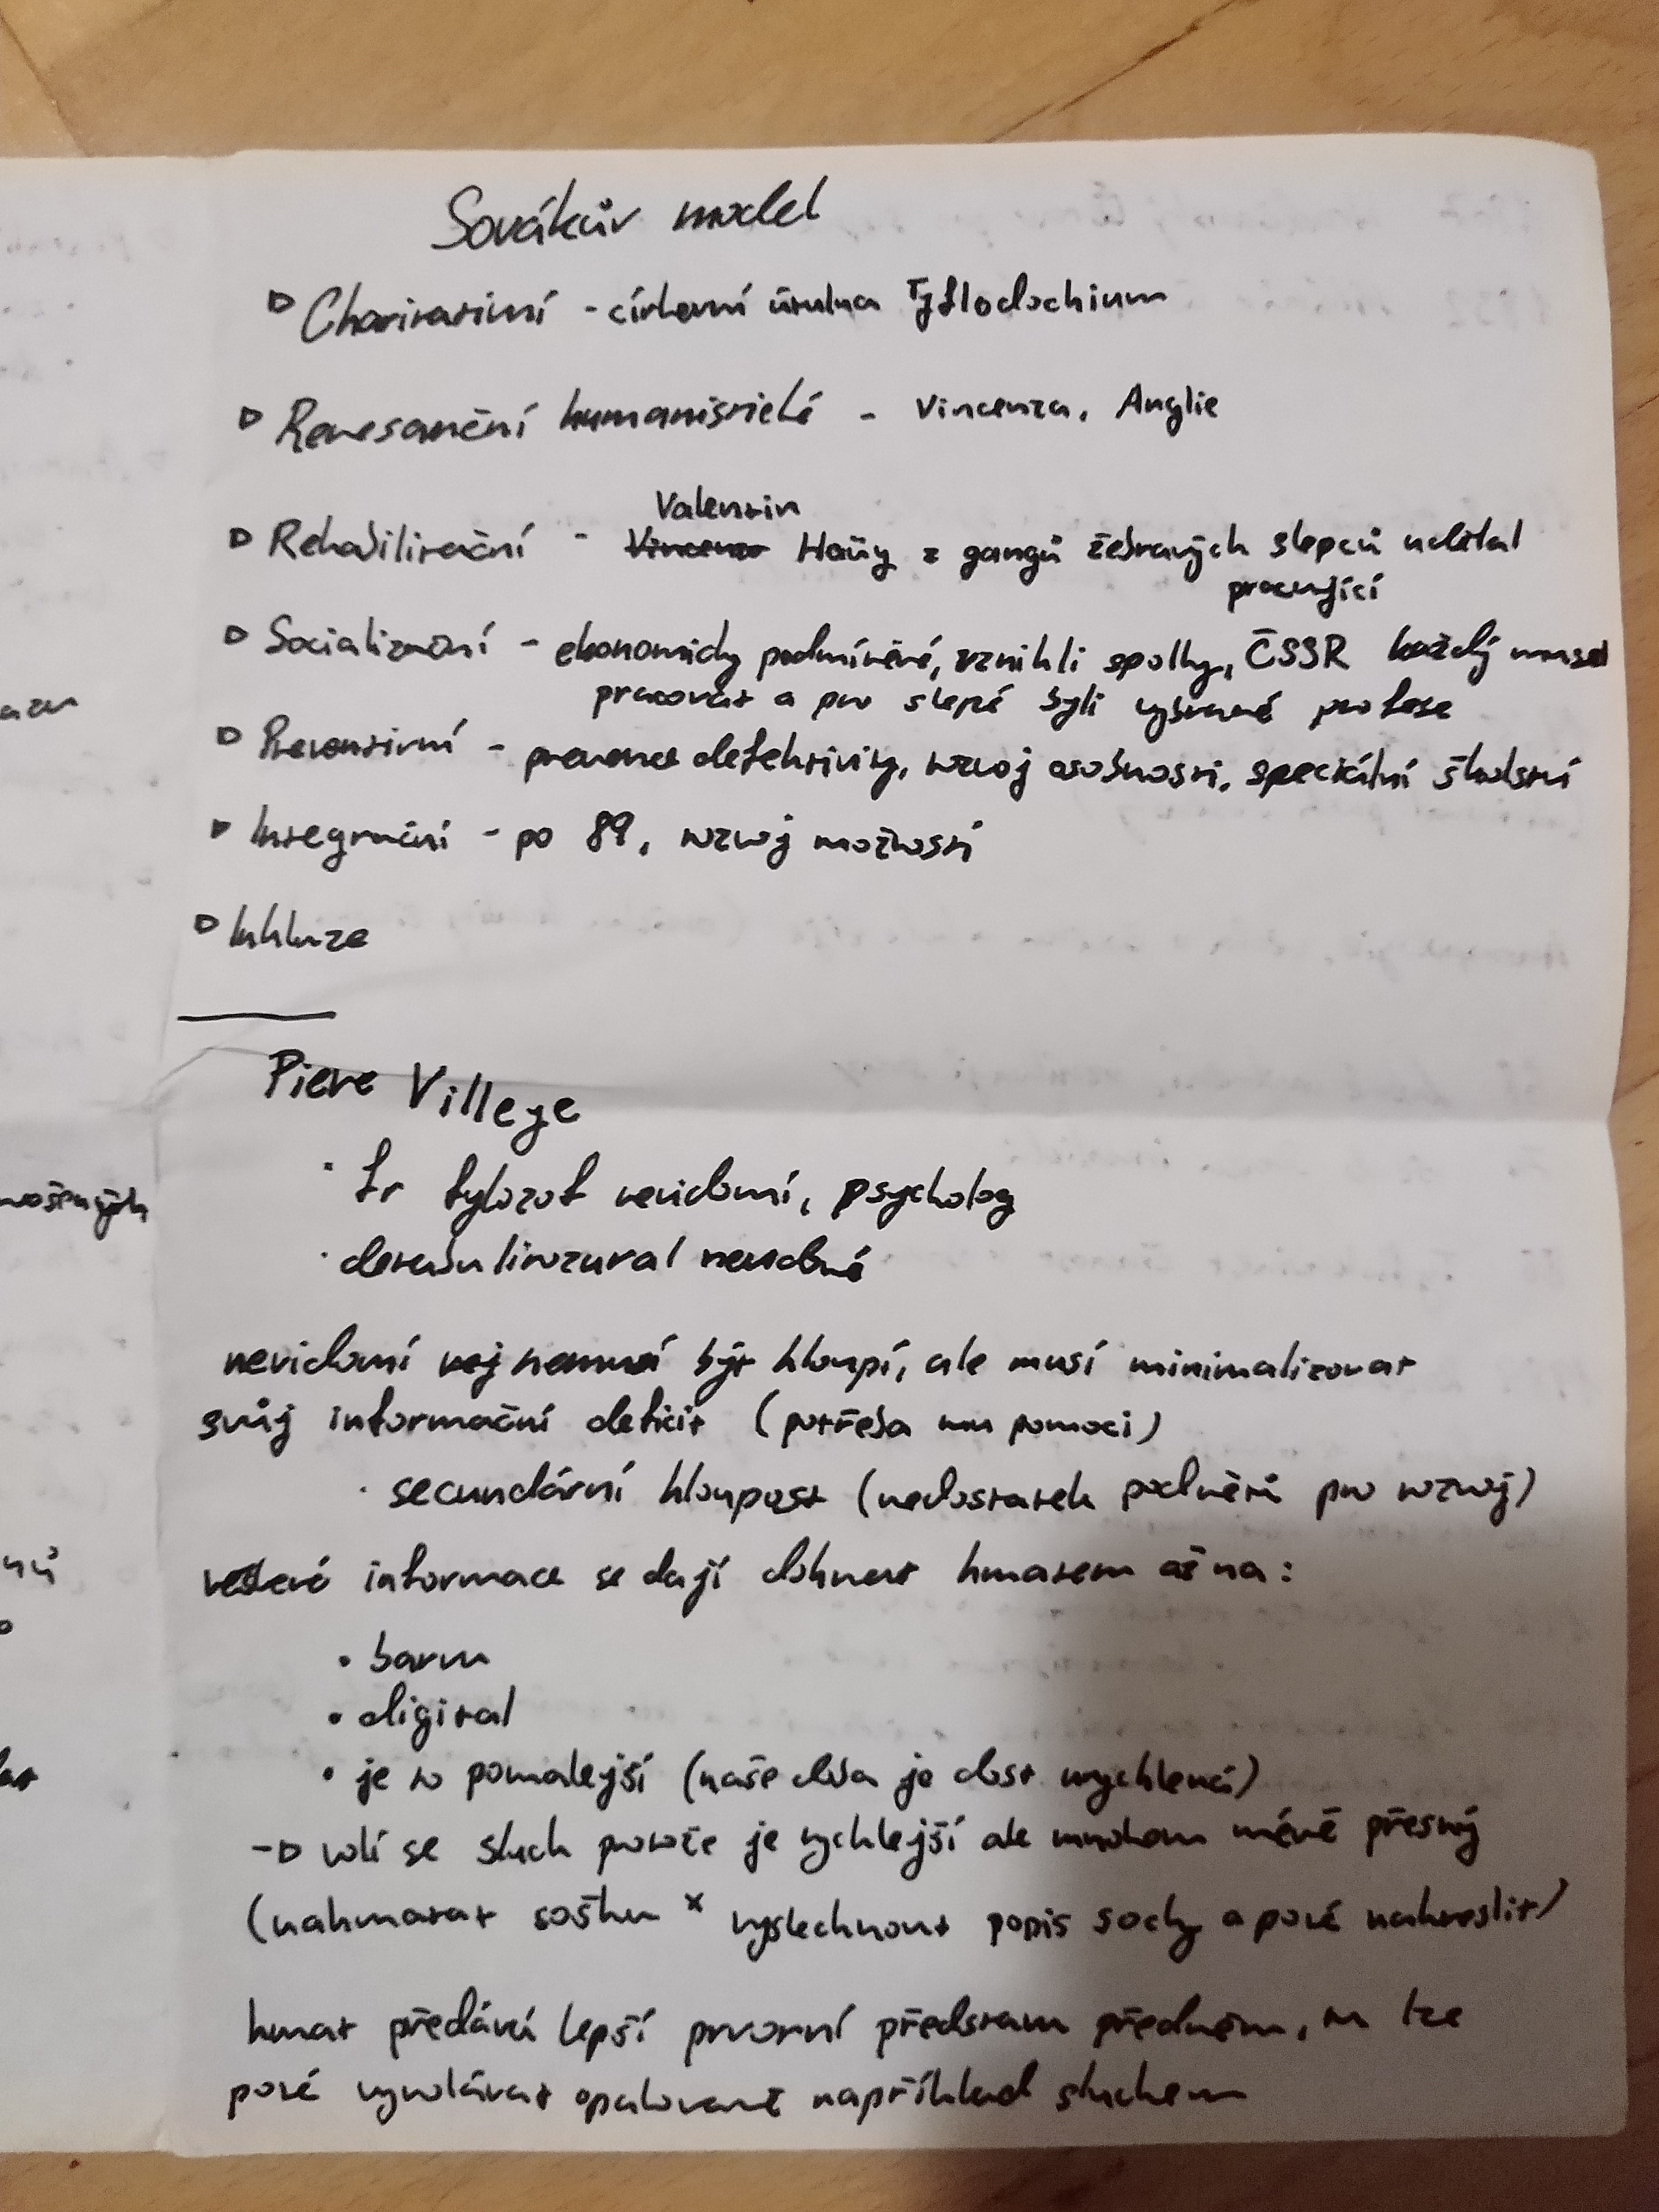 Sovákův model
▷ Charitativní - církevní útulna Tyflodochium
▷ Renesanční humanistické - Vincenza, Anglie
Valentin
▷ Rehabilitační - Vincenz Haüy z gangů žebravých slepců udělal
pracující
▷ Socializační - ekonomicky podmíněné, vznikli spolky, ČSSR každý musel
pracovat a pro slepé byli vybrané profese
▷ Preventivní - prevence defektivity, rozvoj osobnosti, speciální školství
▷ Integrační - po 89, rozvoj možností
▷ Inkluze
Piere Villege
· fr fylozof nevidomí, psycholog
· nevidomé
nevidomí být hloupí, ale musí minimalizovat
svůj informační deficit (potřeba mu pomoci)
· secundární hloupost (nedostatek podnětů pro rozvoj)
informace se dají dohnat hmatem až na:
• barvu
• digital
• je to pomalejší (naše doba je dost)
-▷ volí se sluch protože je rychlejší ale mnohem méně přesný
(nahmatat sošku x vyslechnout popis sochy a poté nakreslit)
hmat předává lepší prvotní představu předmětu, tu lze
poté vyvolávat opakovaně například sluchem
mostných